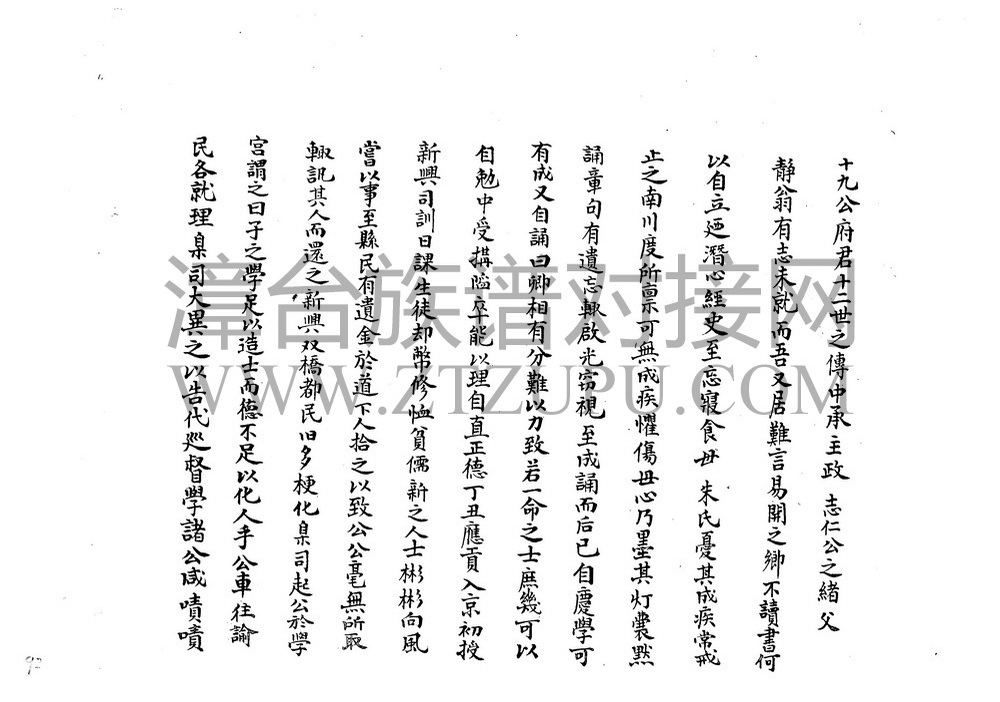 十九公府君十二世之傳中承主政　志仁公之緒父
靜翁有志未就而吾又居難言易開之鄉不讀書何
以自立廼潛心經史至忘寢食毋　朱氏憂其成疾常戒
止之南川度所禀可無成疾懼傷毋心乃墨其灯裳黙
誦章句有遺忘輙啟光窃視至成誦而后已自慶學可
有成又自誦曰卿相有分難以力致若一命之士庶幾可以
自勉中受搆陥卒能以理自直正德丁丑應貢入京初授
新興司訓日課生徒却幣修恤貧儒新之人士彬彬向風
嘗以事至縣民有遺金於道下人拾之以致公公毫無所取
輙訊其人而還之新興双橋都民旧多梗化臬司起公於學
宫謂之曰子之學足以造士而德不足以化人乎公車往諭
民各就理臬司大異之以告代巡督學諸公咸嘖嘖
92
漳台族谱对接网
WWW.ZTZUPU.COM